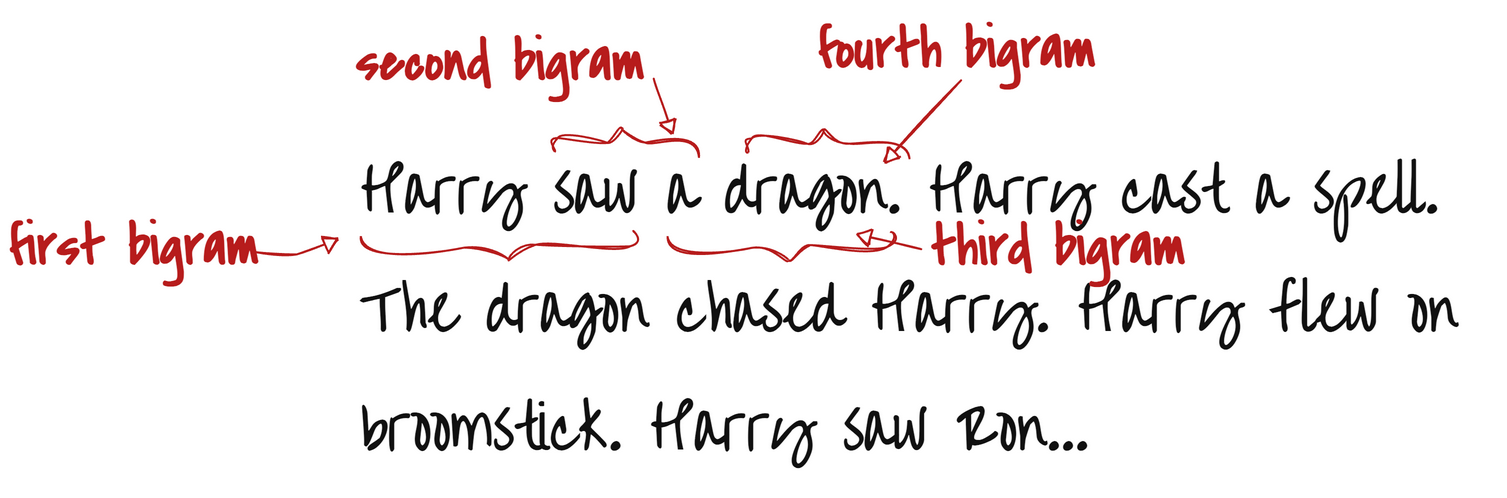 second bigram
fourth bigram
Harry saw a dragon. Harry cast a spell.
first bigram
third bigram
The dragon chased Harry. Harry flew on
broomstick. Harry saw Ron...